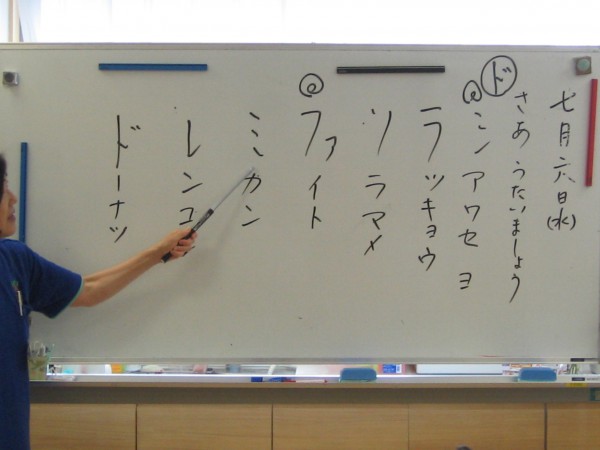 七月六日(水)
さあ うたいましょう
ド
@ シアワセ ヨ
ラッキョウ
ソラマメ
@ ファイト
ミカン
レンコ
ドーナツ